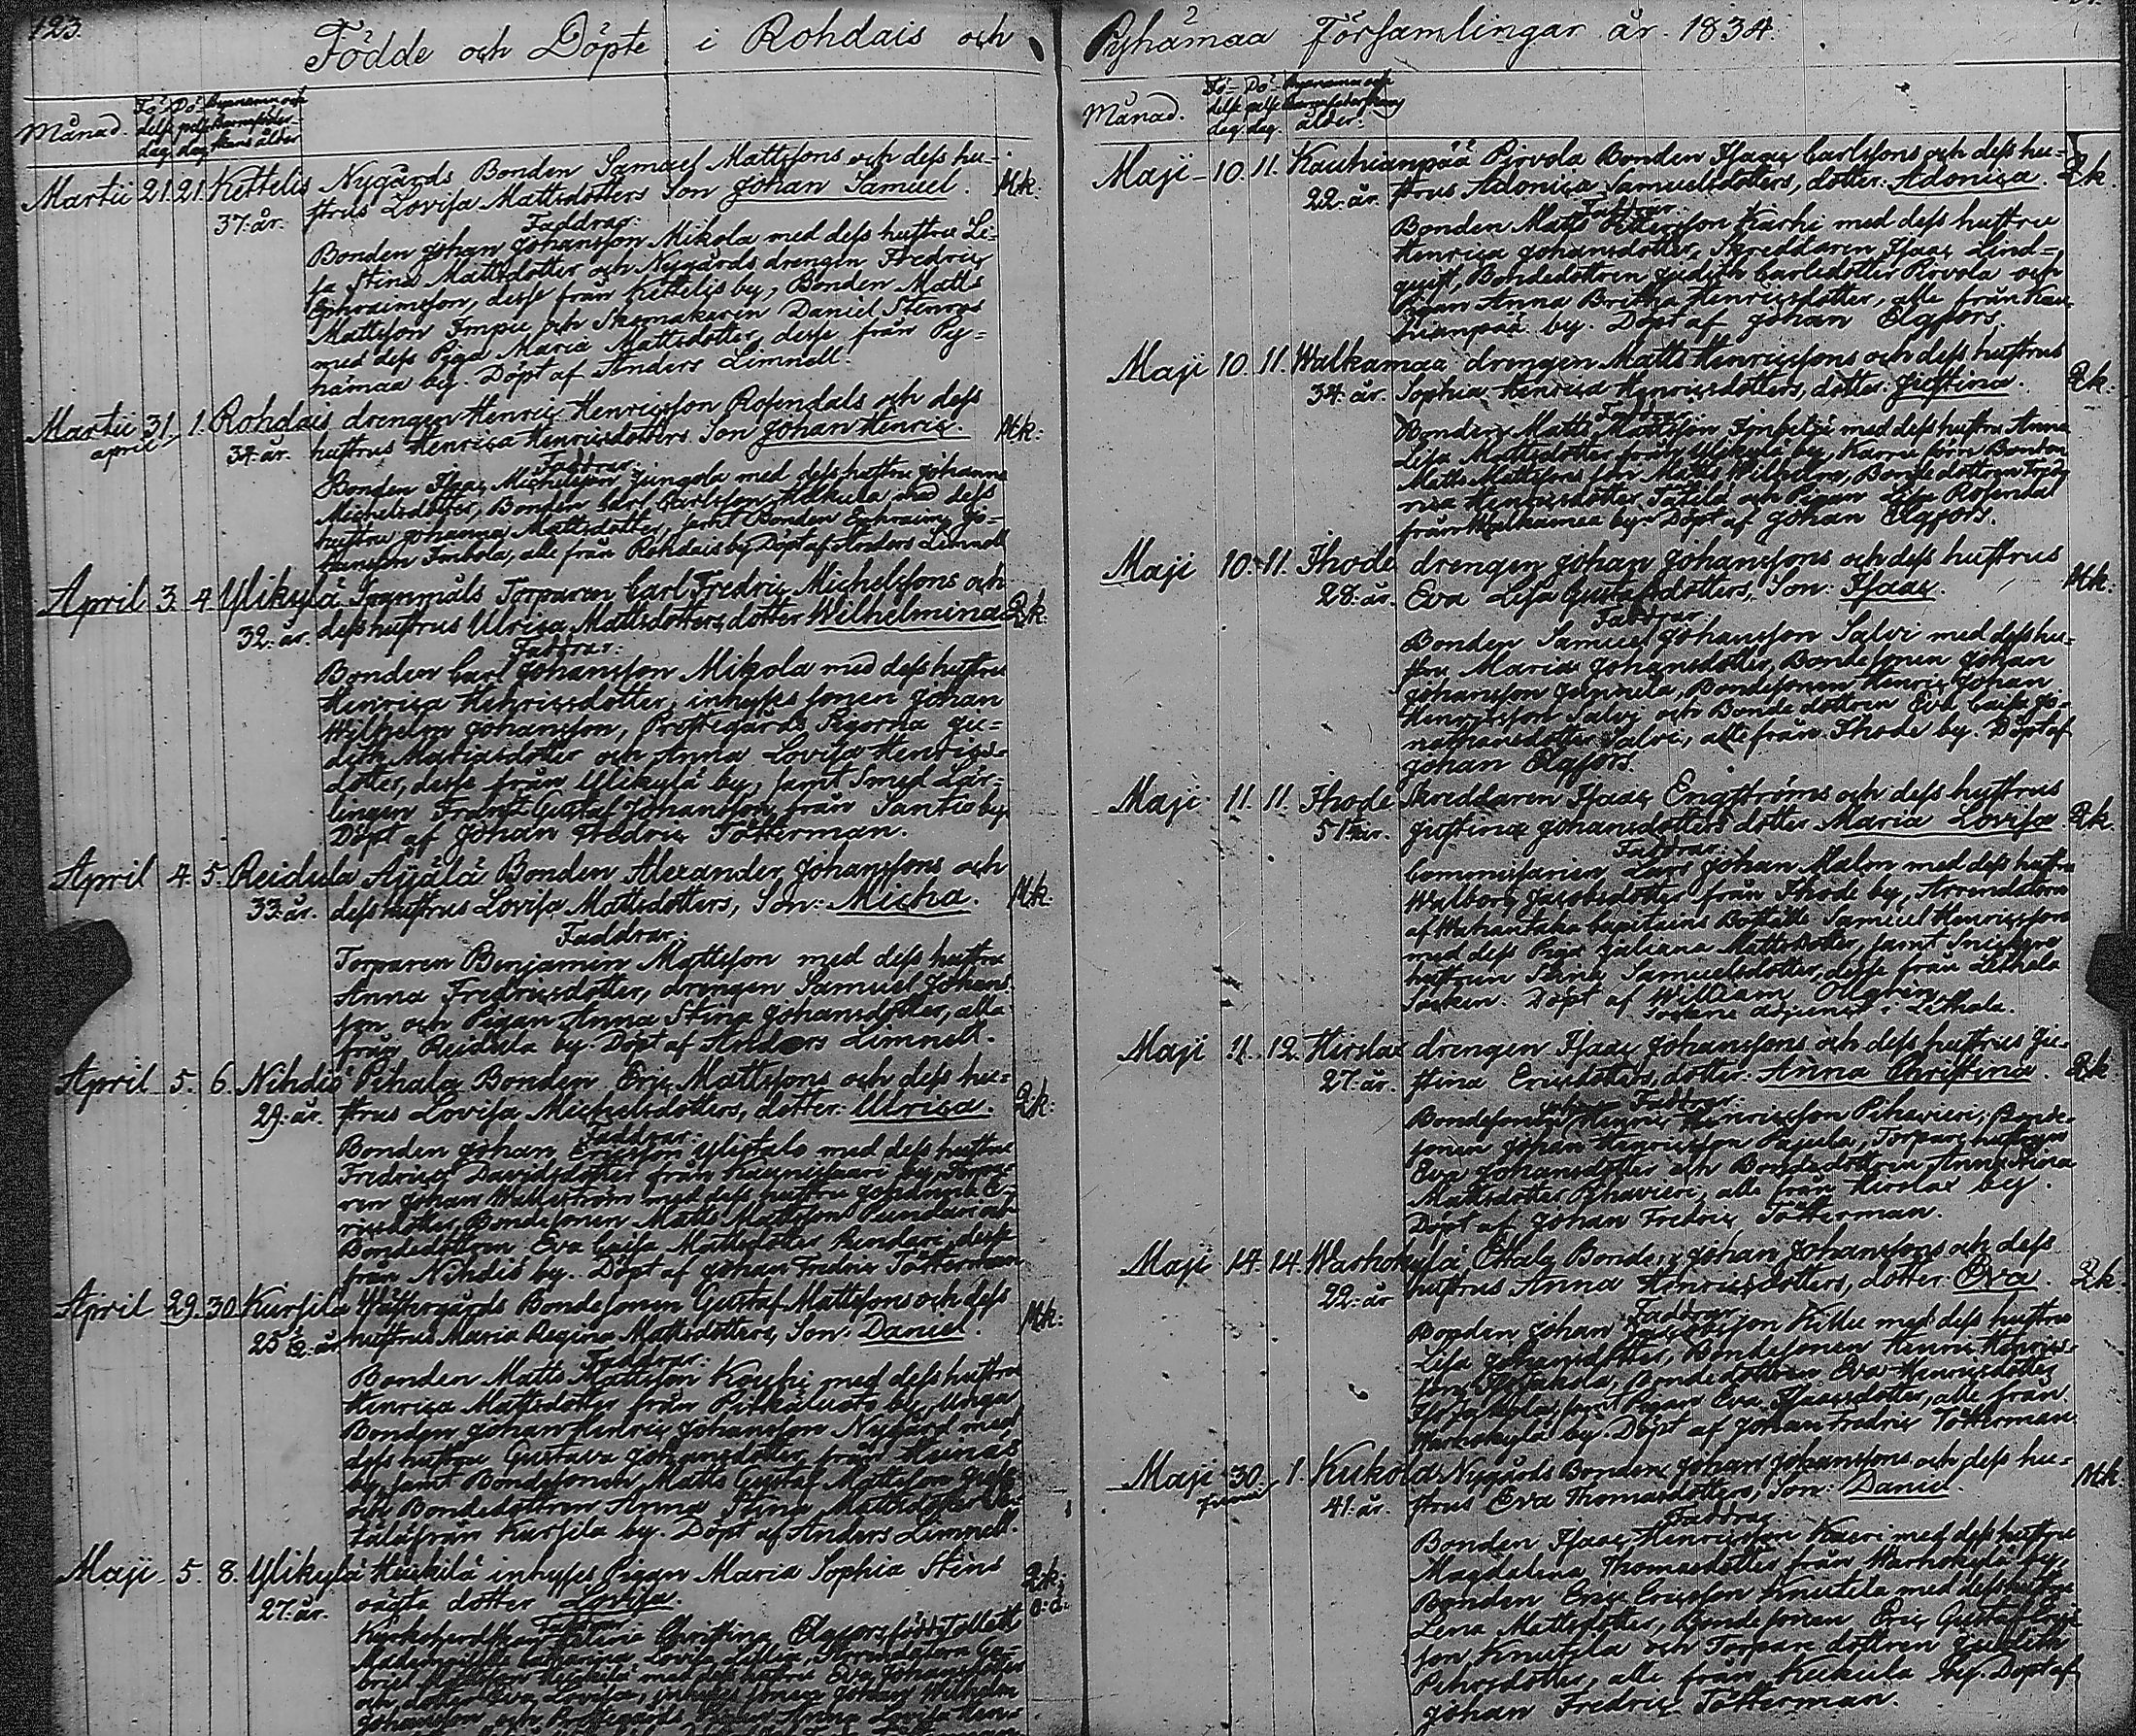 123.
Födde och Döpte i Rohdais och
Månad. Fö-delse dag Dö-pelse dag Bynamn och Barnsföder-skans ålder
Martii 21. 21. Kettelis Nygårds Bonden Samuel Mattssons och dess hu- Mk:
37. år. strus Lovisa Mattsdotters Son Johan Samuel.
Faddrar:
Bonden Johan Johansson Mikola med dess hustru Li-
sa Stina Mattsdotter och Nygårds drengen Fredric
Ephraimsson, desse från Kettelis by, Bonden Matts
Mattsson Impii och Skomakaren Daniel Stenroos
med dess Piga Maria Mattsdotter, desse från Py-
hämaa by. Döpt af Anders Limnell.
Martii 31. 1. Rohdais drengen Henric Henricsson Rosendals och dess
april 34. år. hustrus Henrica Henricsdotters Son Johan Henric. Mk:
Faddrar:
Bonden Isaac Michelsson Jungola med dess hustru Johanna
Michelsdotter, Bonden Carl Carlsson med dess
hustru Johanna Mattsdotter, samt Bonden Ephraim Jo-
hansson alle från Rohdais by. Döpt af Anders Limnell
April 3. 4. Ylikylä Torparen Carl Fredric Michelssons och
32. år. dess hustrus Ulrica Mattsdotters dotter Wilhelmina Qk:
Faddrar:
Bonden Carl Johansson Mikola med dess hustru
Henrica Henricsdotter, inhyses sonen Johan
Wilhelm Johansson, Prostegårds Pigorna Ju-
dith Mariasdotter och Anna Lovisa Henrics-
dotter, desse från Ylikylä by, samt Smed Lär-
lingen Gustaf Johansson från Santio by
Döpt af Johan Fredric Tötterman.
April 4. 5. Reidula Äijälä Bonden Alexander Johanssons och
33. år. dess hustrus Lovisa Mattsdotters, Son: Micha. Mk:
Faddrar:
Torparen Benjamin Mattsson med dess hustru
Anna Fredricsdotter, drengen Samuel Johans-
son och Pigan Anna Stina Johansdotter, alla
från Reidula by. Döpt af Anders Limnell.
April 5. 6. Nihdiö Pihala Bonden Eric Mattssons och dess hu-
29. år. strus Lovisa Michelsdotters, dotter: Ulrica. Qk:
Faddrar:
Bonden Johan Ericsson Ylistalo med dess hustru
Fredrica Davidsdotter från by, Torpa-
ren Johan med dess hustru E-
ricsdotter, Bondesonen Matts Mattsson
Bondedottren Eva Caisa Mattsdotter desse
från Nihdiö by. Döpt af Johan Fredric Tötterman
April 29. 30. Kursila Wästergårds Bondesonen Gustaf Mattssons och dess
25 1/2 år. hustrus Maria Regina Mattsdotters, Son: Daniel. Mk:
Faddrar:
Bonden Matts Mattsson med dess hustru
Henrica Mattsdotter från Pitkäluoto by, Unga
Bonden Johan Henric Johansson Nygård med
dess hustru Gustava Johansdotter från
by, samt Bondesonen Matts Gustaf Mattsson
och Bondedottren Anna Stina Mattsdotter
från Kursila by. Döpt af Anders Limnell.
Maji 5. 8. Ylikylä Heikilä inhyses Pigan Maria Sophia Stens Qk:
27. år. oägta dotter Lovisa. o: ä:
Faddrar:
Christina Elgfors född Tollett
Lovisa
med dess hustru Eva Johansdotter
och dotter Eva Lovisa, inhyses sonen Johan Wilhelm
Johansson och Anna Lovisa Hen-
Pyhämaa Församlingar år. 1834.
Månad. Fö-delse dag. Dö-pelse dag. Bynamn och Barnsföderskans ålder.
Maji 10. 11. Kauhianpää Pirvola Bonden Isaac Carlssons och dess hu- Qk.
22. år. strus Adonica Samuelsdotters, dotter: Adonica.
Faddrar:
Bonden Matts Pettersson Karhi med dess hustru
Henrica Johansdotter, Skreddaren Isaac Lind-
quist, Bondedottren Judith Carlsdotter Pirvola och
Pigan Anna Britha Henricsdotter, alle från Kau-
hianpää by. Döpt af Johan Elgfors.
Maji 10. 11. Walkamaa drengen Matts Henricssons och dess hustrus
34. år. Sophia Henrica Henricsdotters, dotter: Justina. Qk:
Faddrar:
Bonden Matts Mattsson med dess hustru Anna
Lisa Mattsdotter från Ylikylä by, Bonden
Matts Mattssons son Matts Wilhelm, Bondedottren Fred-
rica Henricsdotter och Pigan Lisa Rosendal
från Walkamaa by. Döpt af Johan Elgfors.
Maji 10. 11. Ihode drengen Johan Johanssons och dess hustrus
28. år. Eva Lisa Gustafsdotters, Son: Isaac. Mk:
Faddrar:
Bonden Samuel Johansson Salvi med dess hu-
stru Maria Johansdotter, Bondesonen Johan
Johansson Bondesonen Henric Johan
Henricsson Salvi och Bondedottren Eva Caisa Jo-
nathansdotter Salvi, alle från Ihode by. Döpt af
Johan Elgfors.
Maji 11. 11. Ihode Skreddaren Isaac Engströms och dess hustrus
51. år. Justina Johansdotters dotter Maria Lovisa. Qk.
Faddrar:
Commissarien Lars Johan Malm med dess hustru
Wilborg Jacobsdotter från Ihode by, Arrendatorn
af Capitains Boställe Samuel Henricsson
med dess Piga Juliana Mattsdotter, samt
hustrun Samuelsdotter, desse från Lethala
Socken. Döpt af William
Sockens adjunct i Lethala.
Maji 11. 12. Hirslax drengen Isaac Johanssons och dess hustrus Ju-
27. år. stina Ericsdotters, dotter: Anna Christina. Qk:
Faddrar:
Bondesonen Henricsson Pihavieri, Bonde-
sonen Johan Henricsson Torpare hustrun
Eva Johansdotter och Bondedottren Anna Stina
Mattsdotter Pihavieri, alle från Hirslax by.
Döpt af Johan Fredric Tötterman.
Maji 14. 14. Warhokylä Ettala Bonden Johan Johanssons och dess
22. år hustrus Anna Henricsdotters, dotter: Eva. Qk
Faddrar:
Bonden Johan Jacobsson Killu med dess hustru
Lisa Johansdotter, Bondesonen Henric Henrics-
son Bondedottren Eva Henricsdotter
samt Pigan Eva Isaacsdotter, alle från
Warhokylä by. Döpt af Johan Fredric Tötterman
Maji 30. 1. Kukola Nygårds Bonden Johan Johanssons och dess hu-
Junii 41. år. strus Eva Thomasdotters, Son: Daniel. Mk:
Faddrar:
Bonden Isaac Henricsson Kaeri med dess hustru
Magdalena Thomasdotter från Warhokylä by,
Bonden Eric Ericsson Knutila med dess hustru
Lena Mattsdotter, Bondesonen Eric Gustaf Erics-
son Knutila och Torpare dottren Judith
Pehrsdotter, alle från Kukola by. Döpt af
Johan Fredric Tötterman.